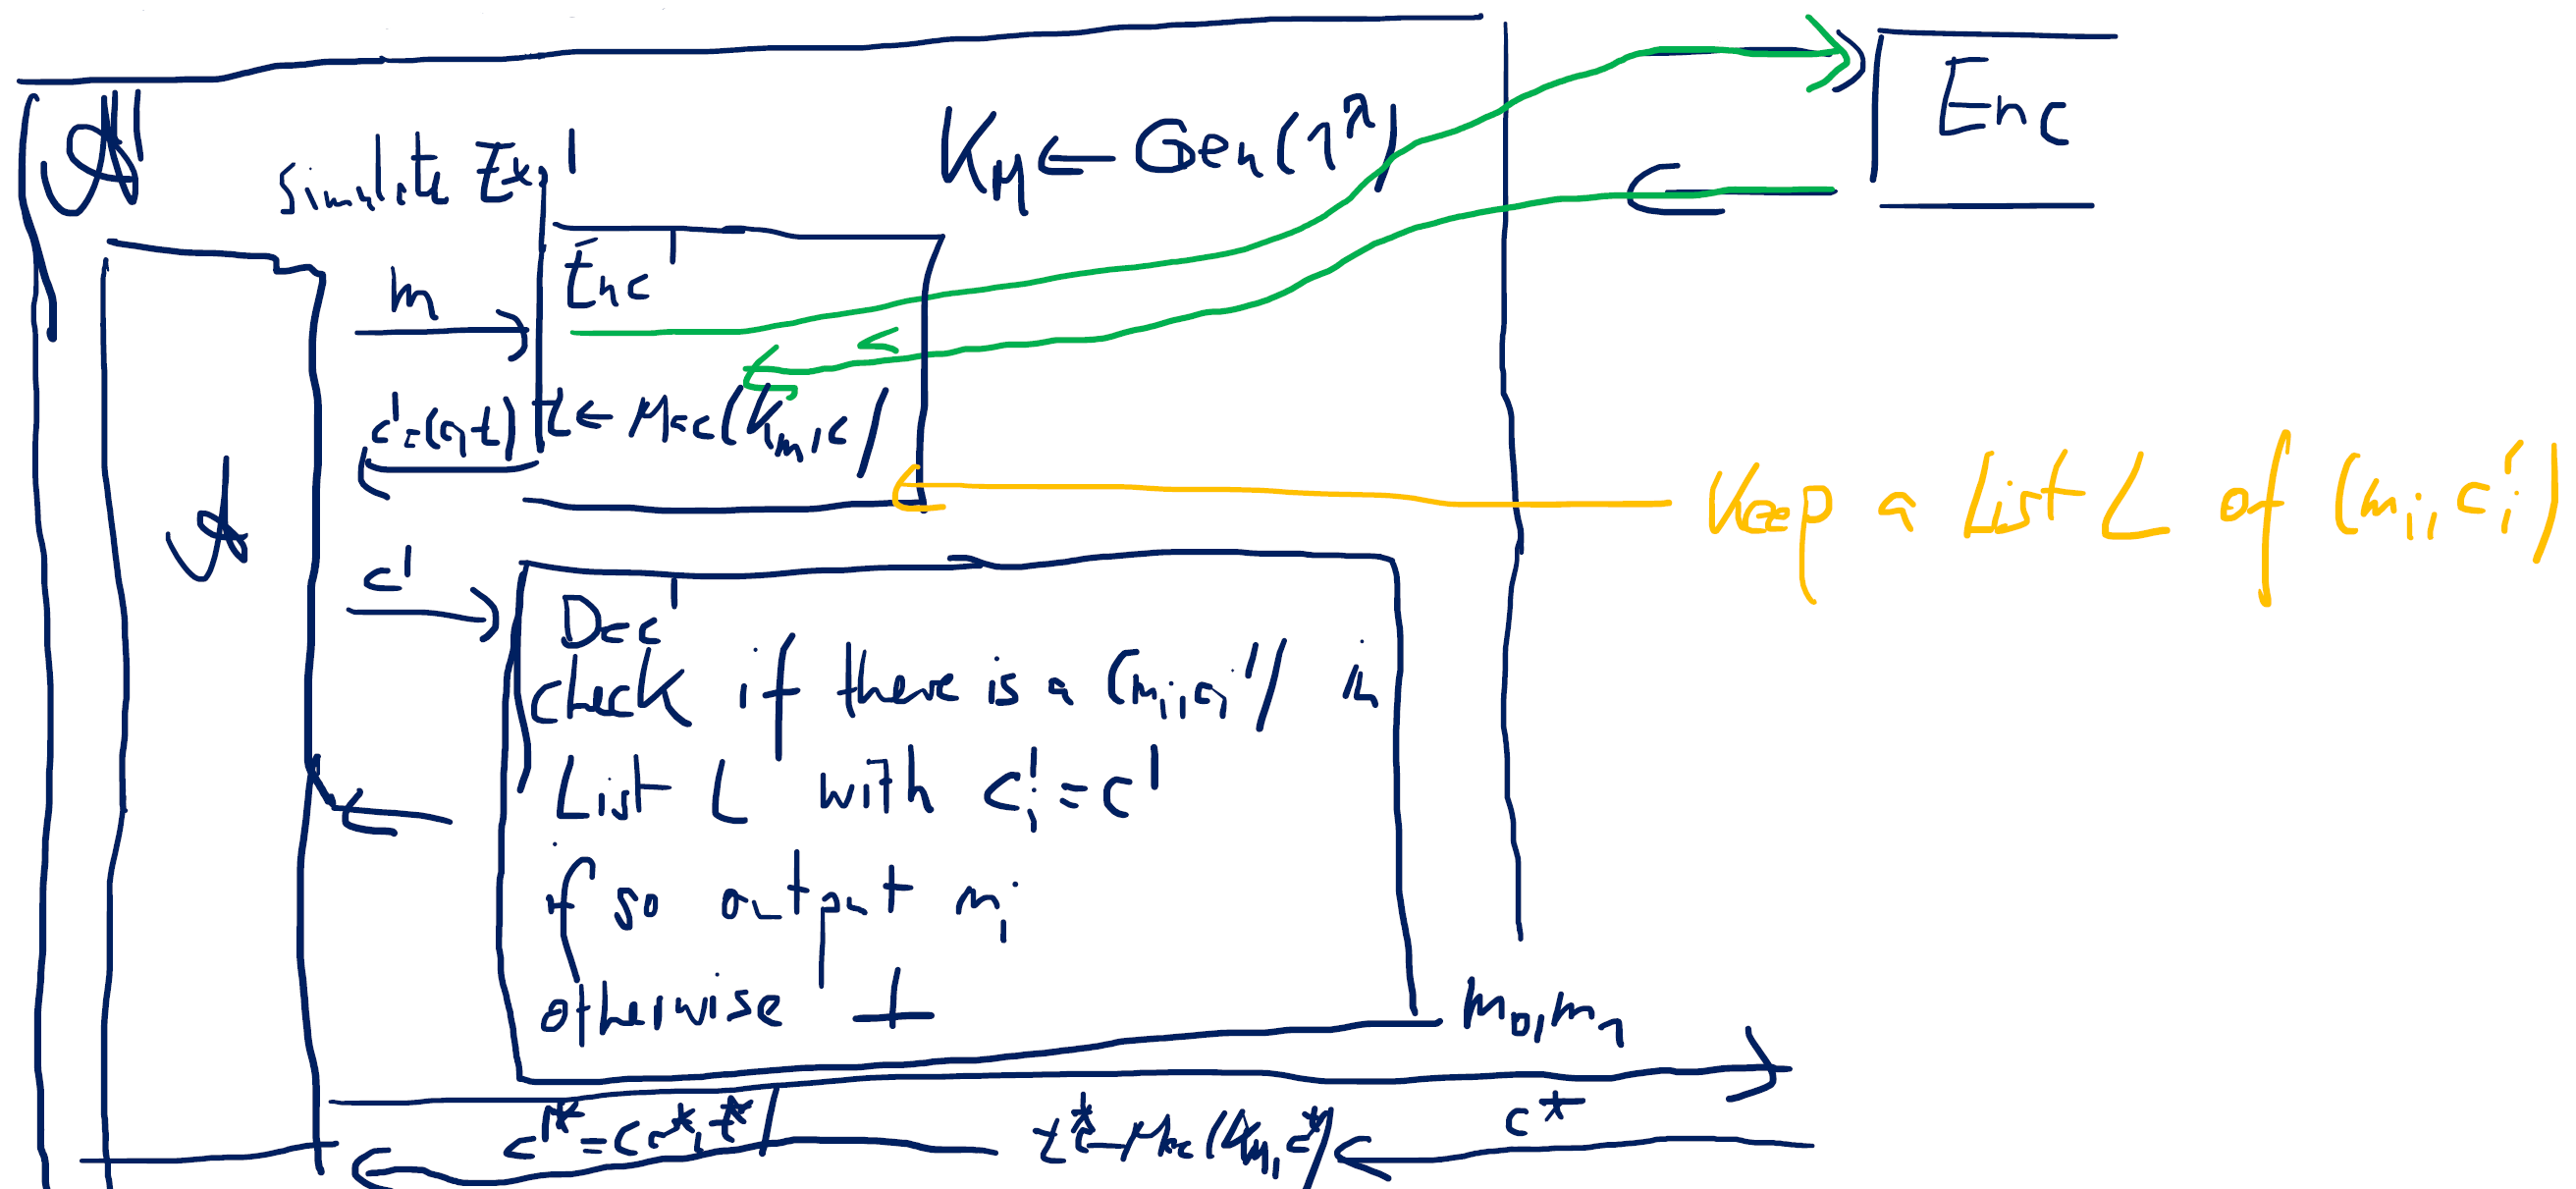 A'
simulate Exp'
K_M ← Gen(1^λ)
Enc
m
Enc'
c'=(c,t)
t ← Mac(K_m, c)
Keep a List L of (m_i, c_i')
A
c'
Dec'
check if there is a (m_i, c_i') in
List L with c_i' = c'
if so output m_i
otherwise ⊥
m_0, m_1
c'* = (c*, t*)
t* ← Mac(K_m, c*)
c*